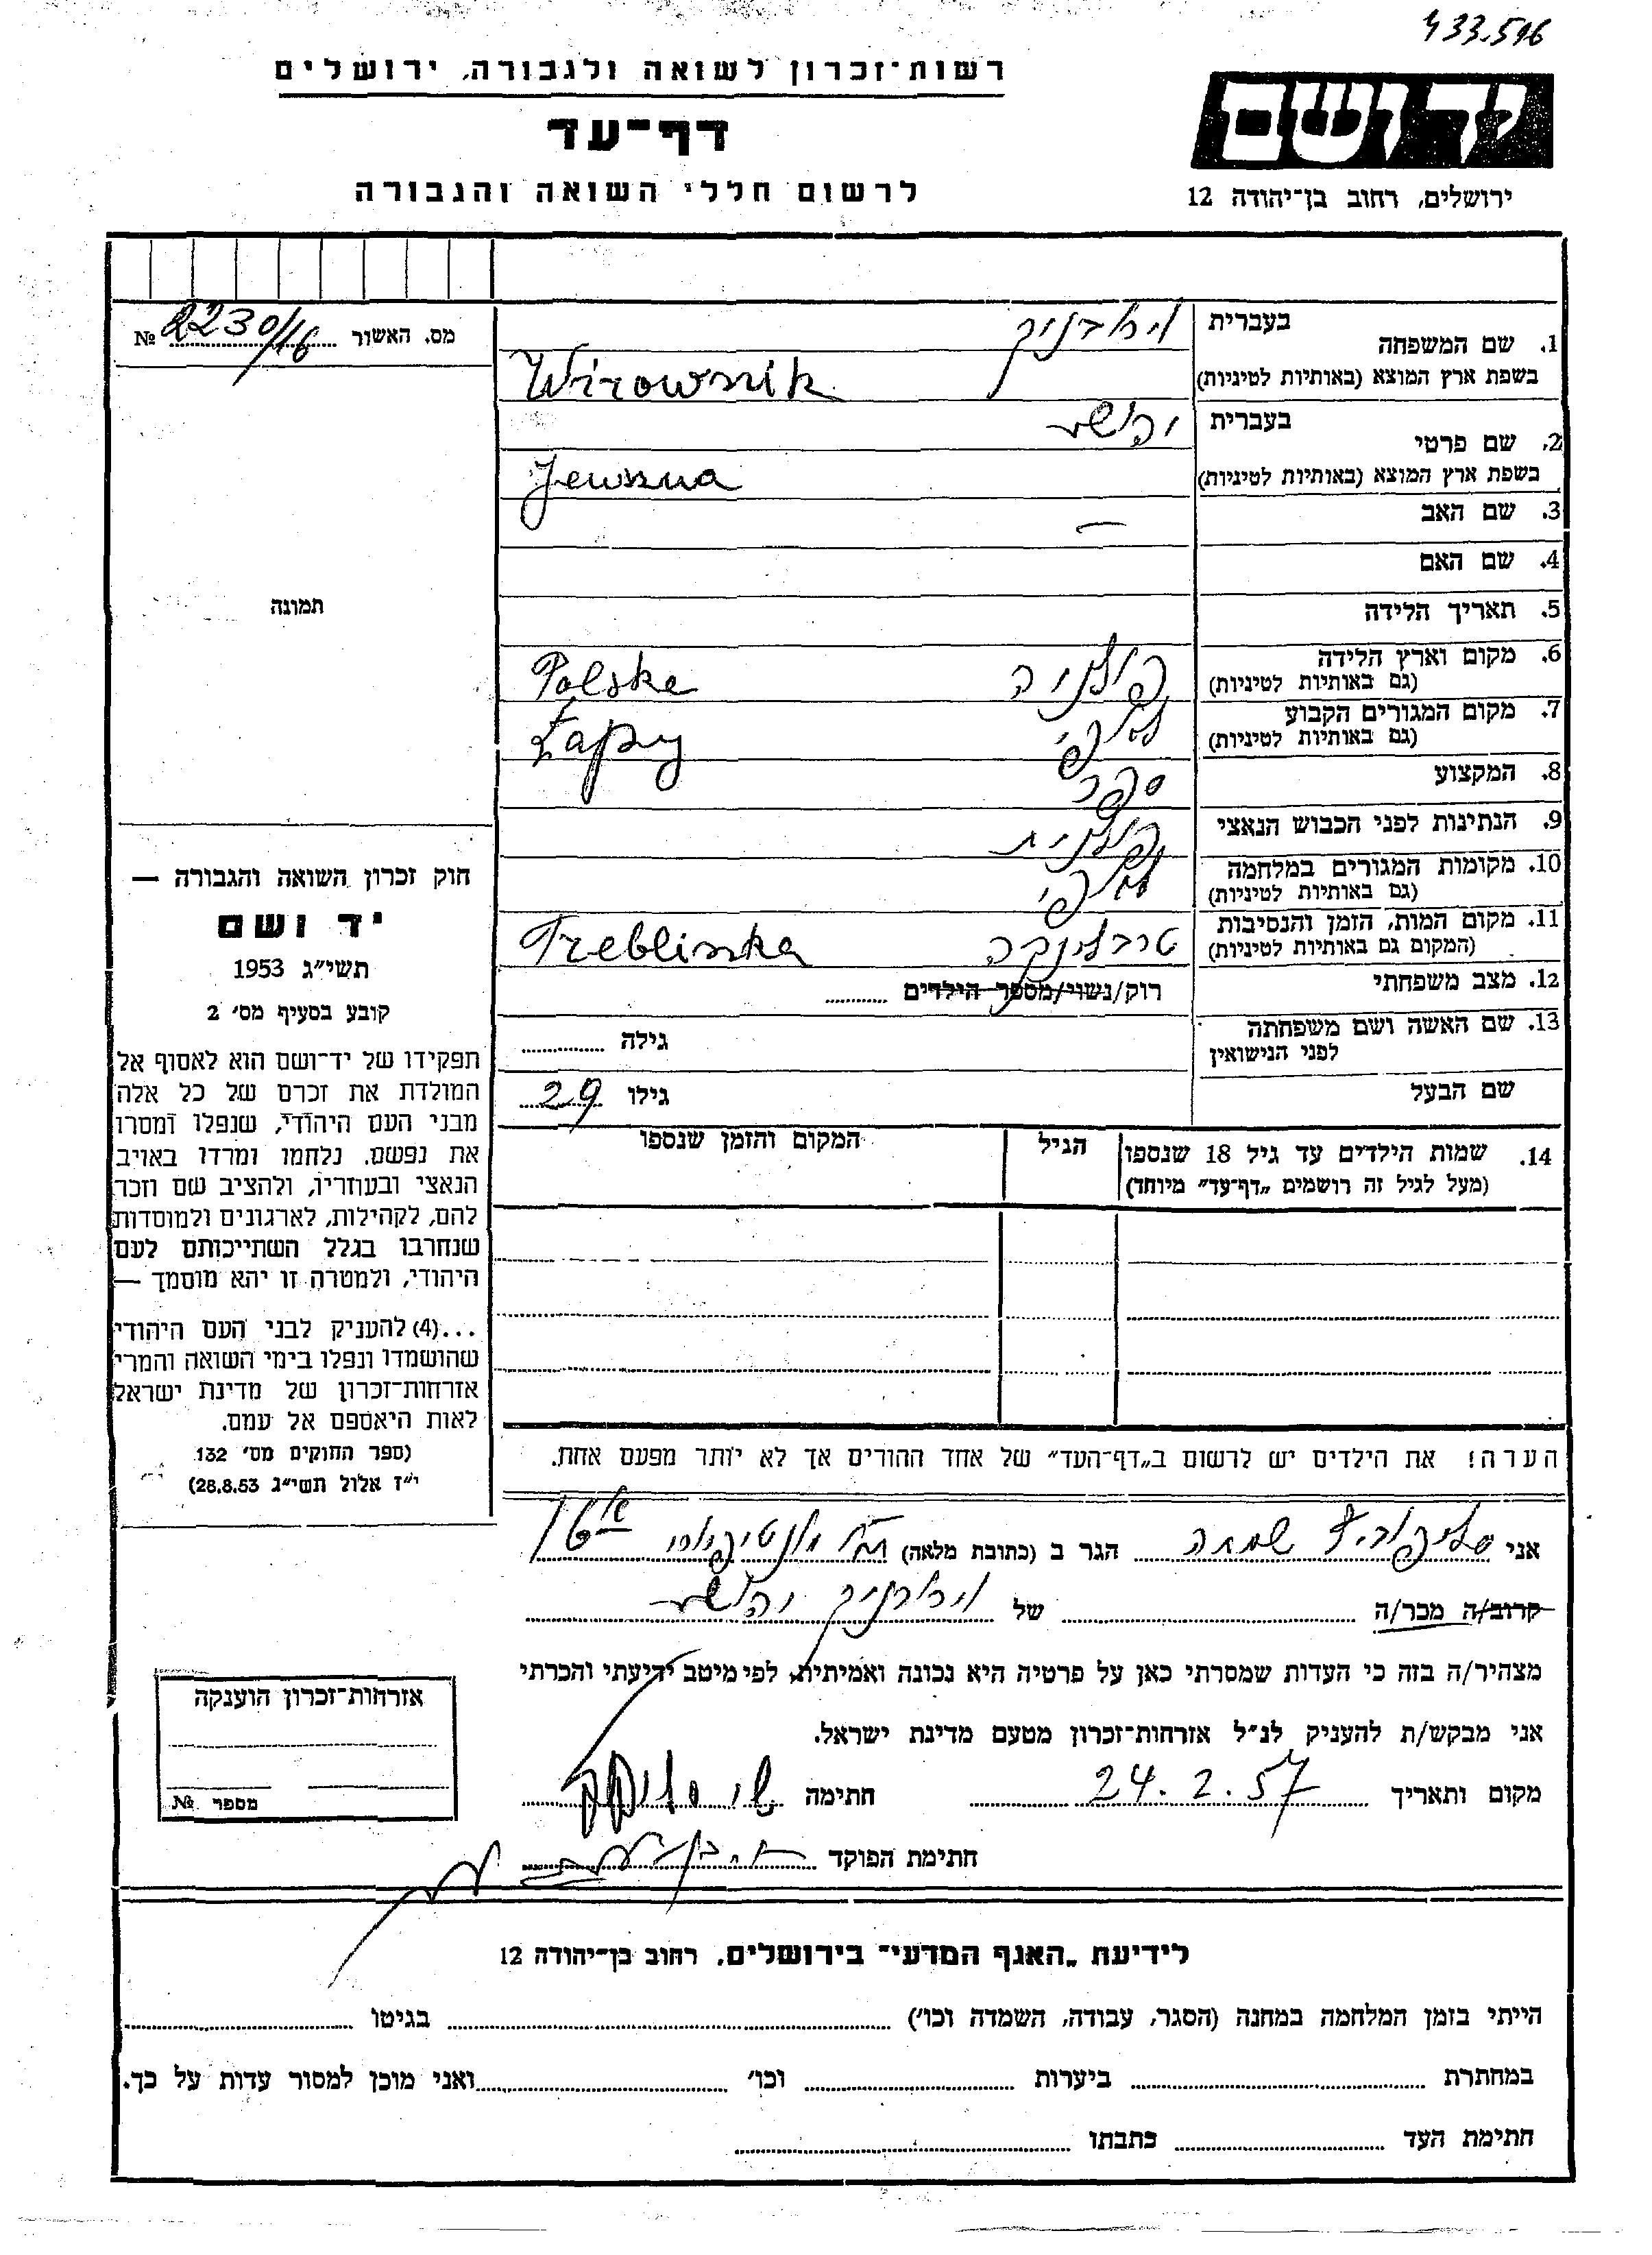 433.516
רשות־זכרון לשואה ולגבורה, ירושלים
יד ושם
דף־עד
לרשום חללי השואה והגבורה
ירושלים, רחוב בן־יהודה 12
1. שם המשפחה
בעברית
וירובניק
בשפת ארץ המוצא (באותיות לטיניות)
Wirownik
מס. האשור 2230/16 №
2. שם פרטי
בעברית
יהושע
בשפת ארץ המוצא (באותיות לטיניות)
Jewszua
3. שם האב —
4. שם האם
5. תאריך הלידה
6. מקום וארץ הלידה
(גם באותיות לטיניות)
פולניה Polske
7. מקום המגורים הקבוע
(גם באותיות לטיניות)
לאפי Łapy
8. המקצוע ספר
9. הנתינות לפני הכבוש הנאצי פולנית
10. מקומות המגורים במלחמה
(גם באותיות לטיניות)
לאפי
11. מקום המות, הזמן והנסיבות
(המקום גם באותיות לטיניות)
טרבלינקה Treblinka
12. מצב משפחתי רוק/נשוי/מספר הילדים
13. שם האשה ושם משפחתה
לפני הנישואין
גילה
שם הבעל
גילו 29
תמונה
14. שמות הילדים עד גיל 18 שנספו
(מעל לגיל זה רושמים „דף־עד״ מיוחד)
הגיל
המקום והזמן שנספו
חוק זכרון השואה והגבורה —
יד ושם
תשי״ג 1953
קובע בסעיף מס׳ 2
תפקידו של יד־ושם הוא לאסוף אל
המולדת את זכרם של כל אלה
מבני העם היהודי, שנפלו ומסרו
את נפשם, נלחמו ומרדו באויב
הנאצי ובעוזריו, ולהציב שם וזכר
להם, לקהילות, לארגונים ולמוסדות
שנחרבו בגלל השתייכותם לעם
היהודי, ולמטרה זו יהא מוסמך —
...(4) להעניק לבני העם היהודי
שהושמדו ונפלו בימי השואה והמרי
אזרחות־זכרון של מדינת ישראל
לאות היאספם אל עמם.
(ספר החוקים מס׳ 132
י״ז אלול תשי״ג 28.8.53)
הערה! את הילדים יש לרשום ב„דף־העד״ של אחד ההורים אך לא יותר מפעם אחת.
אני שמחה הגר ב (כתובת מלאה)
קרוב/ה מכר/ה של וירובניק יהושע
מצהיר/ה בזה כי העדות שמסרתי כאן על פרטיה היא נכונה ואמיתית, לפי מיטב ידיעתי והכרתי
אני מבקש/ת להעניק לנ״ל אזרחות־זכרון מטעם מדינת ישראל.
מקום ותאריך 24.2.57 חתימה
חתימת הפוקד
אזרחות־זכרון הוענקה
מספר №
לידיעת „האגף המדעי״ בירושלים, רחוב בן־יהודה 12
הייתי בזמן המלחמה במחנה (הסגר, עבודה, השמדה וכו׳) בגיטו
במחתרת ביערות וכו׳ ואני מוכן למסור עדות על כך.
חתימת העד כתבתו